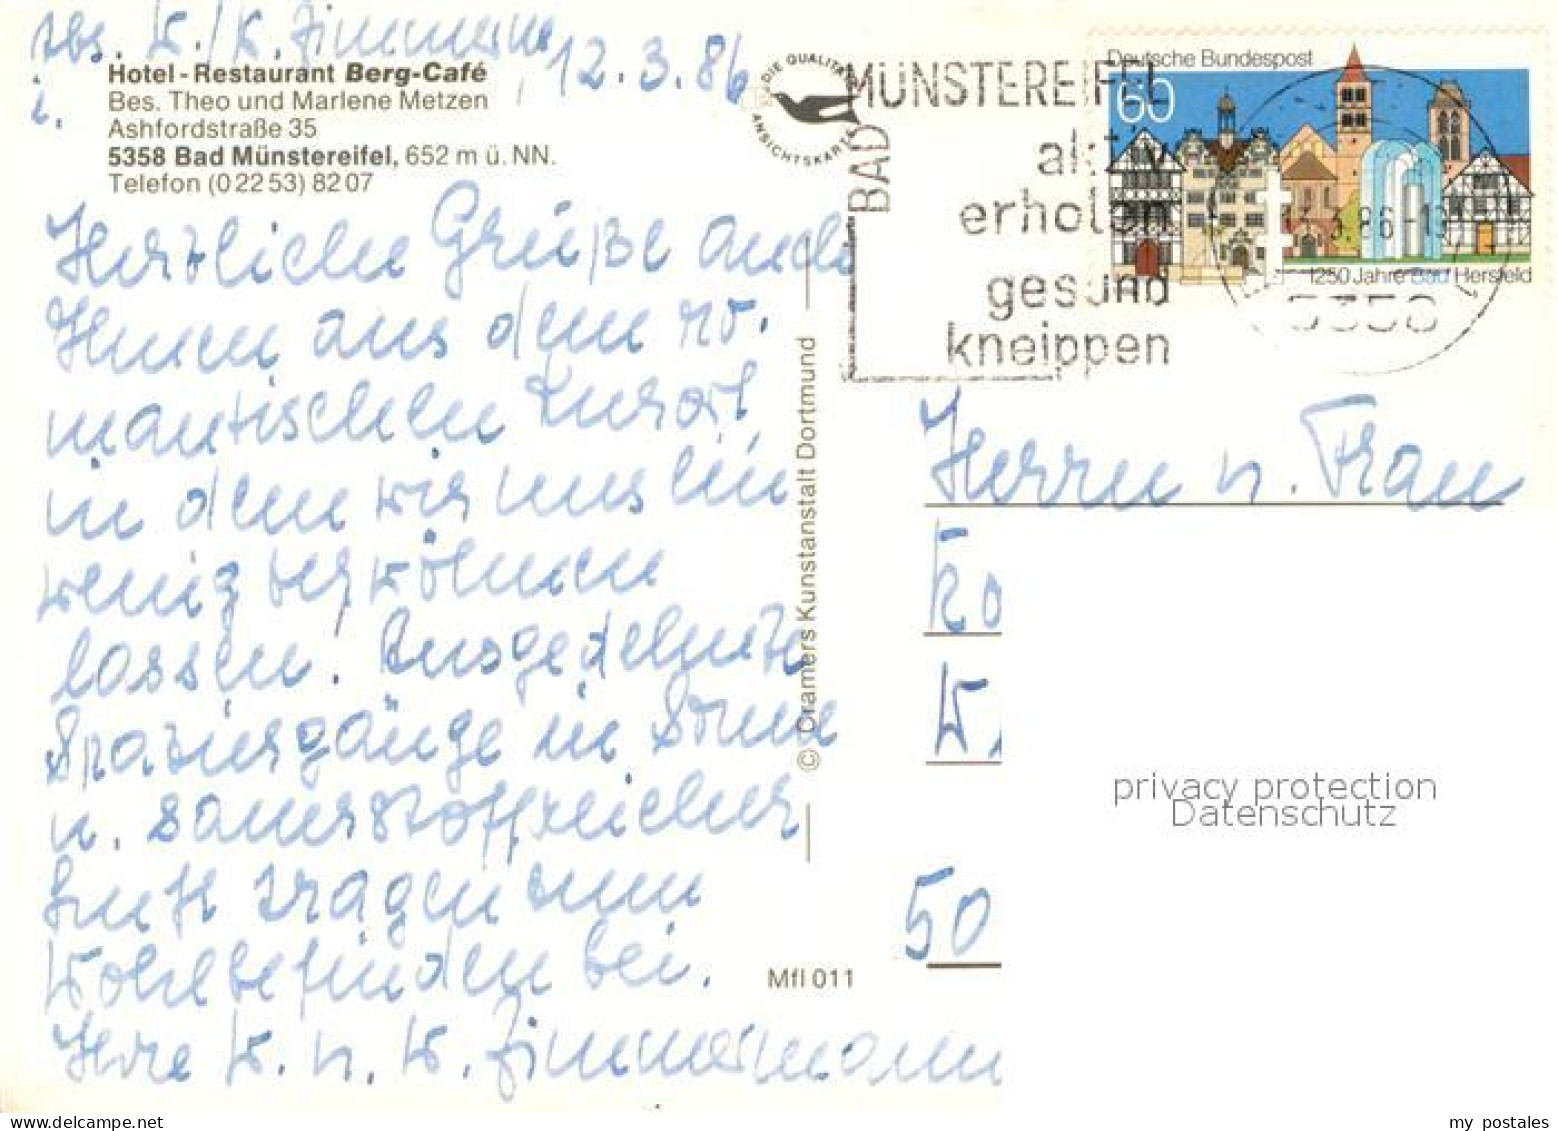 Abs. W./K. Zimmerm
12.3.86
i.
Hotel-Restaurant Berg-Café
Bes. Theo und Marlene Metzen
Ashfordstraße 35
5358 Bad Münstereifel, 652 m ü. NN.
Telefon (02253) 8207
Herzliche Grüße auch
Ihnen aus dem ro-
mantischen Kurort,
in dem wir uns ein
wenig verwöhnen
lassen! Ausgedehnte
Spaziergänge in Sonne
u. sauerstoffreicher
Luft tragen zum
Wohlbefinden bei.
Ihre K. u. W. Zimmermann
DIE QUALITÄTS
ANSICHTSKARTE
© Cramers Kunstanstalt Dortmund
Mfl 011
BAD
MÜNSTEREIFEL
aktiv
erholen
gesund
kneippen
Deutsche Bundespost
60
1250 Jahre Bad Hersfeld
13.3.86-13
5358
Herrn u. Frau
Ko
W.
50
privacy protection
Datenschutz
my postales